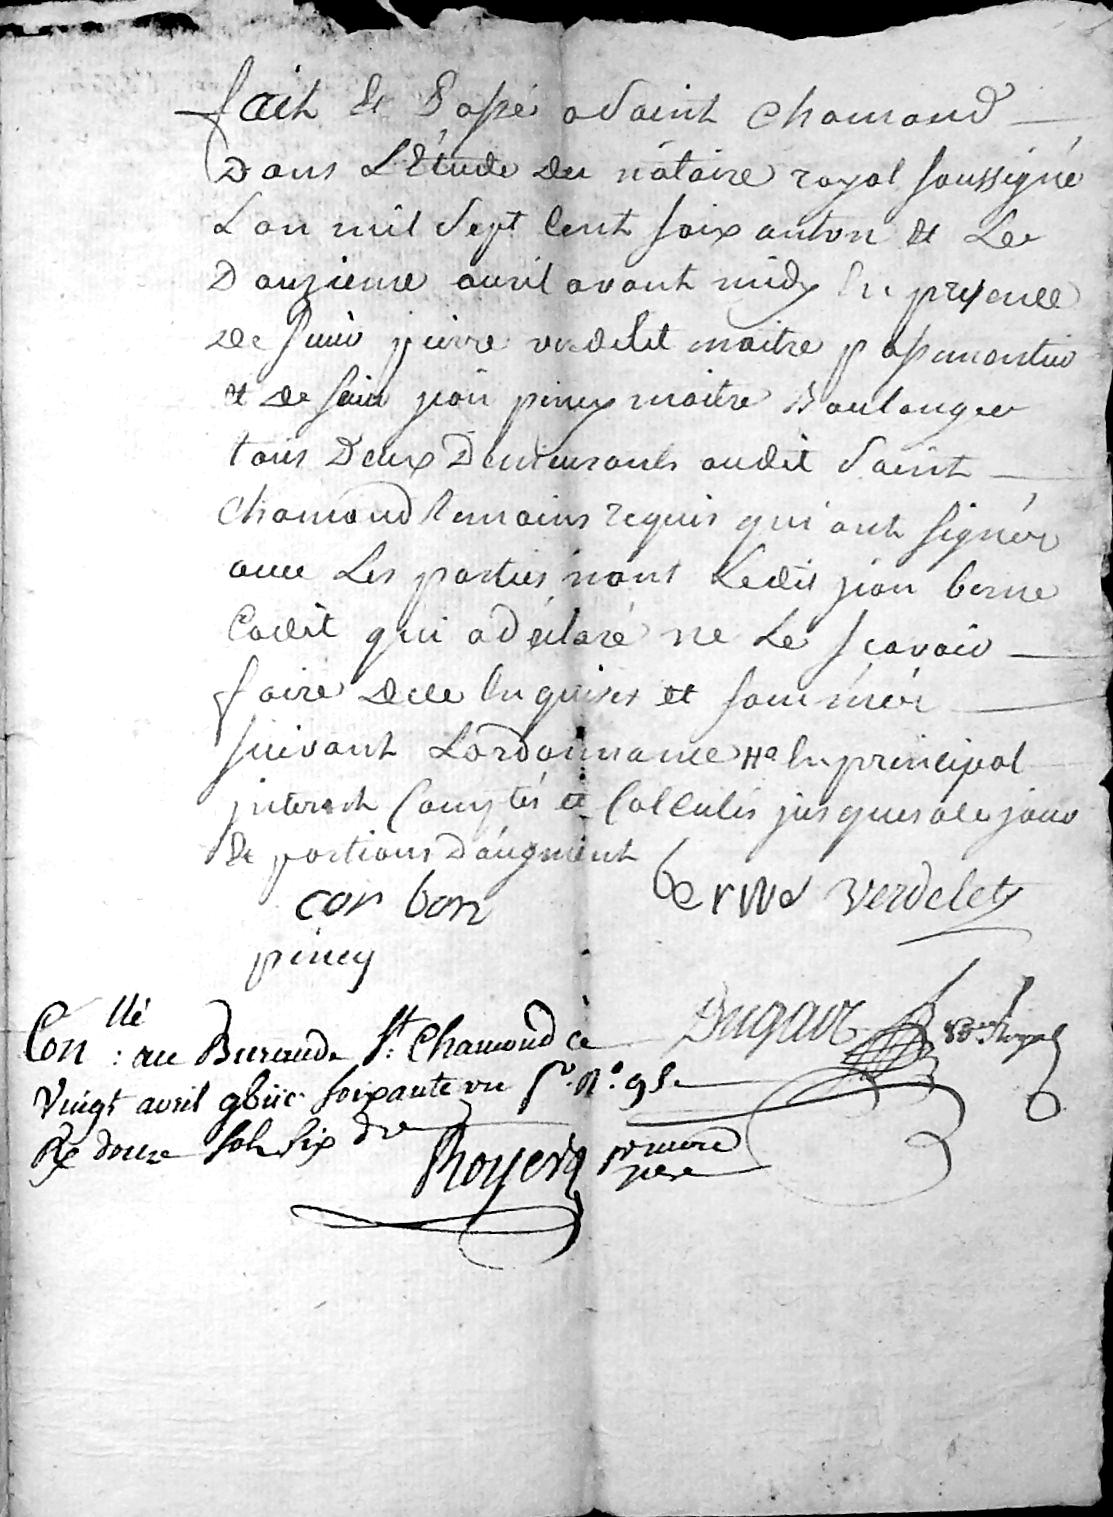 fait & Passé a Saint Chamond
Dans L'Etude du notaire royal soussigné
L'an mil Sept Cent soixante un & Le
Douzieme avril avant midy En presence
de sieur pierre verdelet maitre passementier
& de sieur jean piney maitre Boulanger
tous Deux Demeurants audit Saint
Chamond temoins requis qui ont signér
avec Les parties nont Ledit jean berne
Cadet qui a déclaré ne Le sçavoir
faire de ce Enquises et sommér
suivant Lordonnance en principal
interest Comptés et Calculés jusques a ce jour
& portions D'augment
cor bon berne verdelet
piney
Dugaur Nore Royal
Conllé : au Bureau de St. Chamond ce
Vingt avril gbiic soixante un fo. No. 95.
Re douze sols six drs
Royer